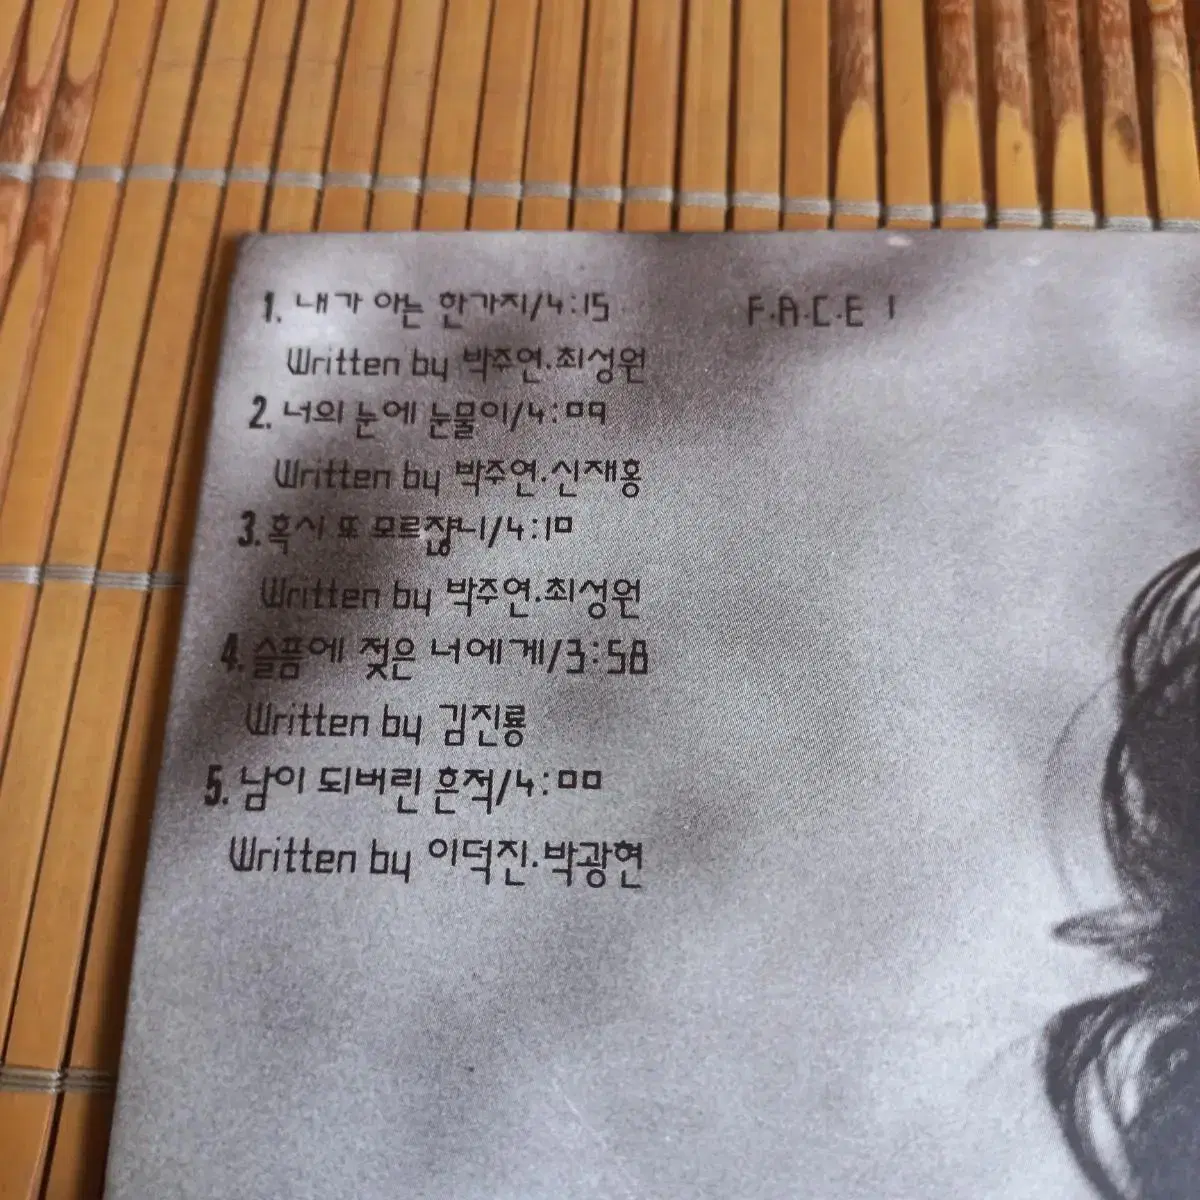 1. 내가 아는 한가지/4:15
F·A·C·E 1
Written by 박주연·최성원
2. 너의 눈에 눈물이/4:09
Written by 박주연·신재홍
3. 혹시 또 모르잖니/4:10
Written by 박주연·최성원
4. 슬픔에 젖은 너에게/3:58
Written by 김진룡
5. 남이 되버린 흔적/4:00
Written by 이덕진·박광현